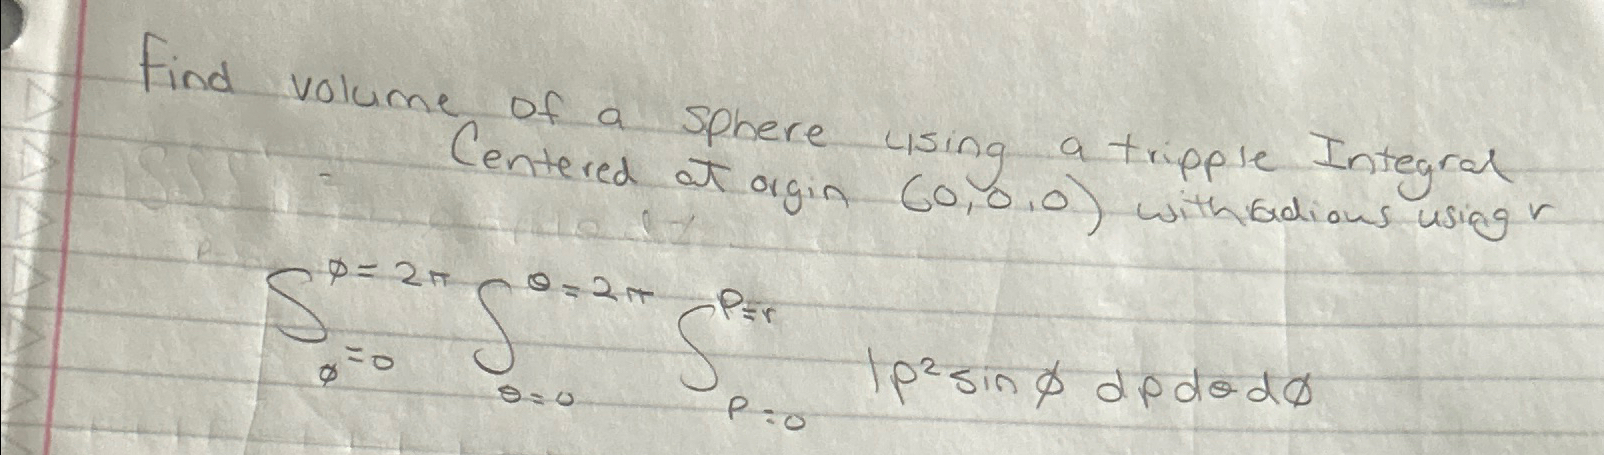 Find volume of a sphere using a tripple Integral
Centered at orgin (0,0,0) with radious using r
∫_{φ=0}^{φ=2π} ∫_{θ=0}^{θ=2π} ∫_{ρ=0}^{ρ=r} 1ρ² sin φ dρ dθ dφ